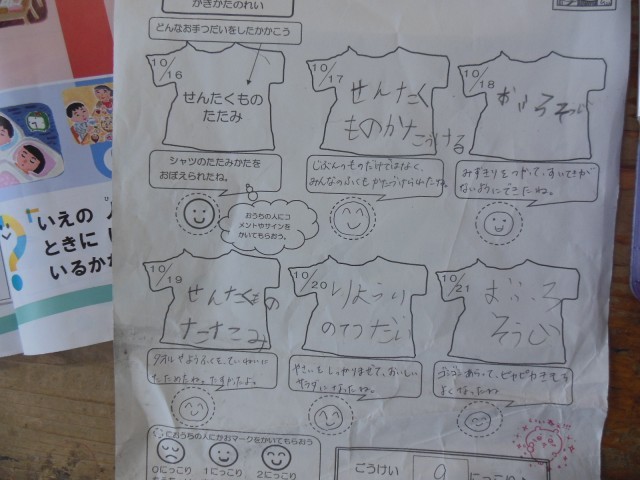 かきかたのれい
どんなお手つだいをしたかかこう
10/16
せんたくもの
たたみ
10/17
せんたく
ものかたづける
10/18
おふろそうじ
シャツのたたみかたを
おぼえられたね。
じぶんのものだけではなく、
みんなのふくもかたづけられたね。
みずきりをつかって、すいてきが
ないようにできたね。
おうちの人にコ
メントやサインを
かいてもらおう。
10/19
せんたくもの
たたみ
10/20
りょうり
のてつだい
10/21
おふろ
そうじ
タオルやようふくを、ていねいに
たためたね。たすかったよ。
やさいをしっかりまぜて、おいしい
サラダになったね。
ゴシゴシあらって、ピカピカきもち
よくなったね
におうちの人にかおマークをかいてもらおう
0にっこり
1にっこり
2にっこり
ごうけい
9
にっこり
「いえの
ときに
いるか